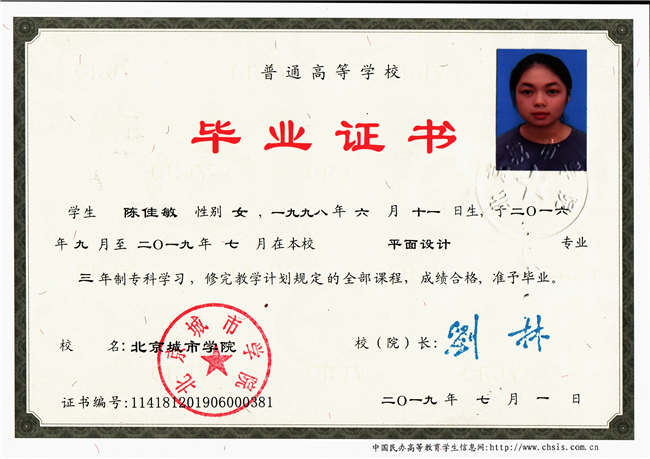 普通高等学校
毕业证书
学生 陈佳敏 性别 女 ，一九九八年 六 月 十一 日生，于二〇一六
年 九 月至 二〇一九年 七 月在本校 平面设计 专业
三 年制专科学习，修完教学计划规定的全部课程，成绩合格，准予毕业。
北京城市学院
校 名：北京城市学院 校（院）长：劉林
证书编号：114181201906000381 二〇一九 年 七 月 一 日
中国民办高等教育学生信息网：http://www.chsis.com.cn